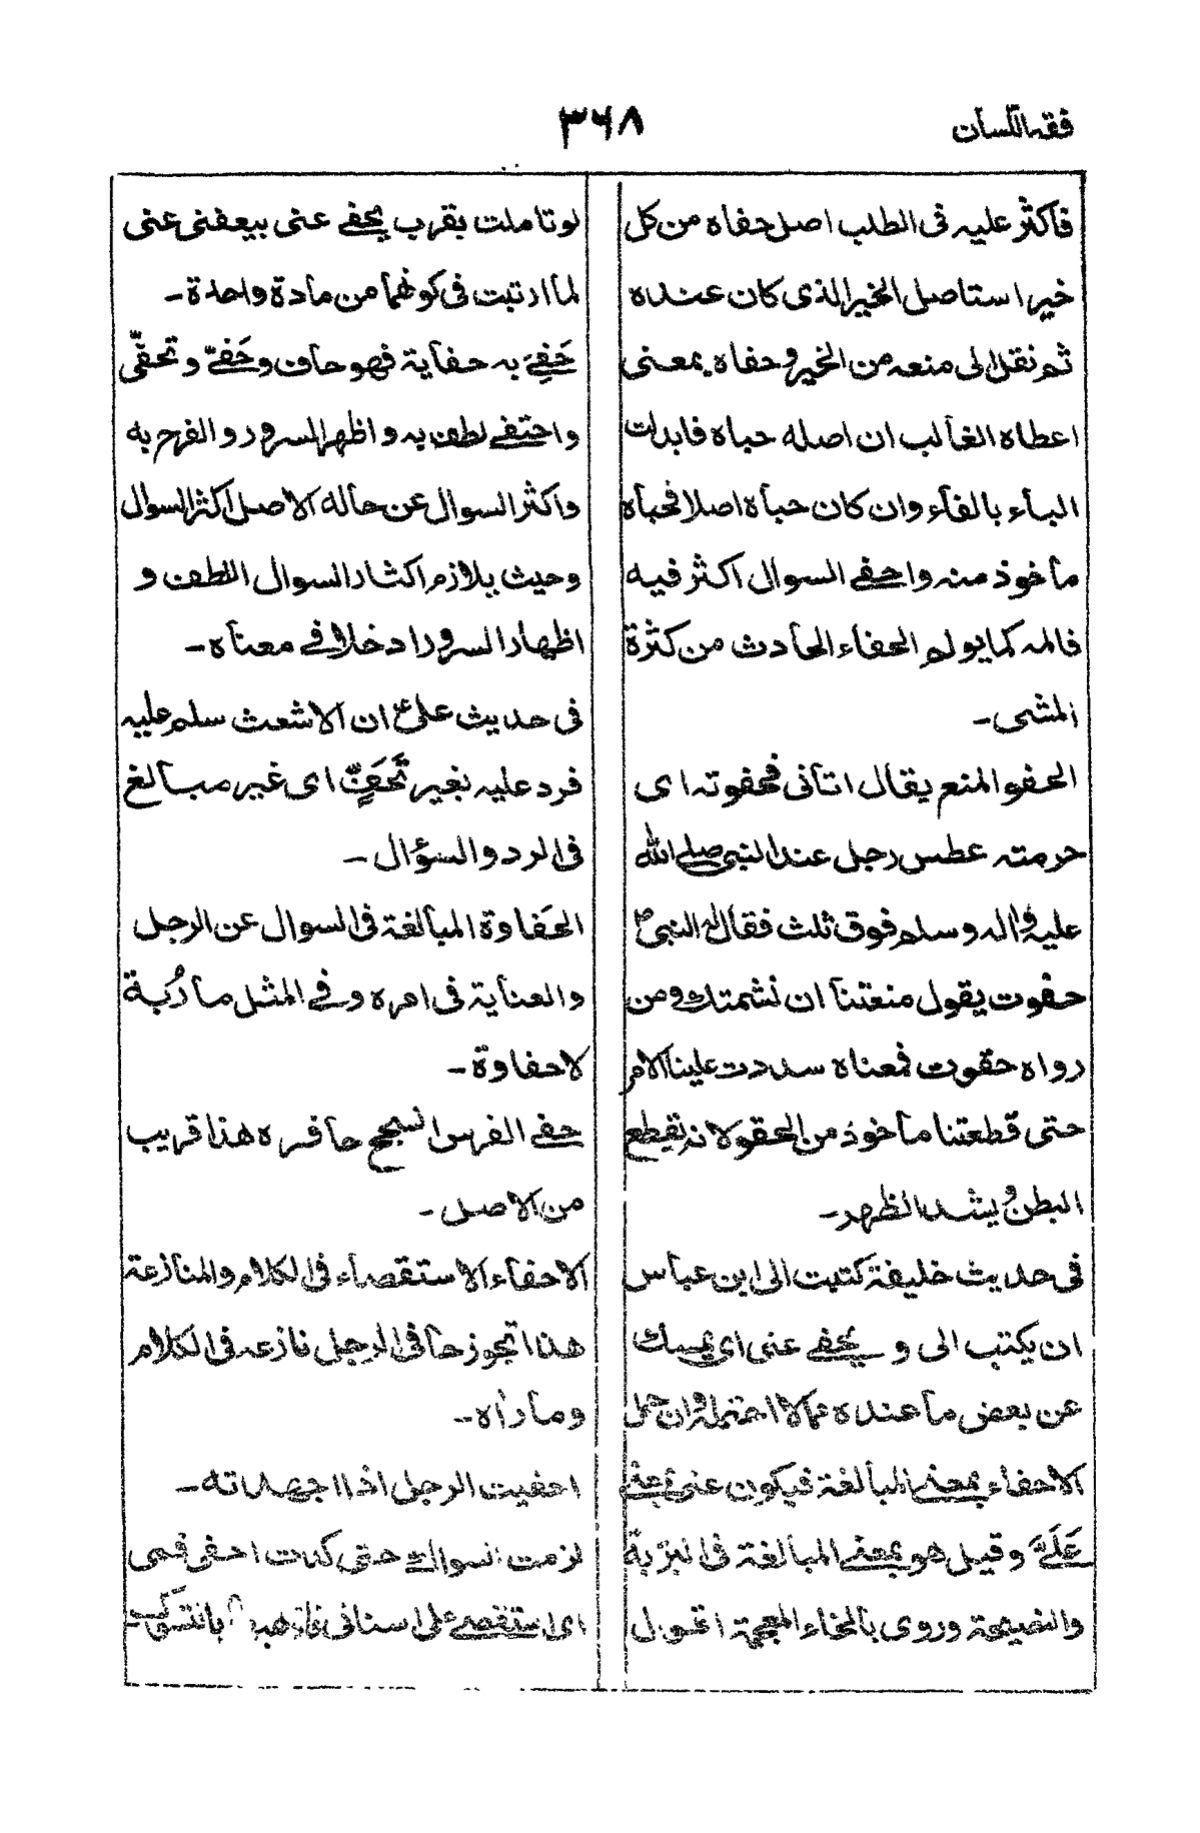 فقہ اللسان
۳۶۸
فاکثر علیہ فی الطلب اصل حفاہ من کل
خیر استاصل الخیر الذی کان عندہ
ثم نقل الی منعہ من الخیر و حفاہ بمعنی
اعطاہ الغالب ان اصلہ حباہ فابدلت
الباء بالفاء وان کان حباہ اصلا فحباہ
ماخوذ منہ واحفے السوال اکثر فیہ
فالمہ کما یولم الحفاء الحادث من کثرۃ
المشی۔
الحفو المنع یقال اتانی فحفوتہ ای
حرمتہ عطس رجل عند النبی صلے اللہ
علیہ واٰلہ وسلم فوق ثلث فقال لہ النبی ص
حفوت یقول منعتنا ان نشمتک ومن
رواہ حقوت فمعناہ سددت علینا الامر
حتی قطعتنا ماخوذ من الحقو لانہ یقطع
البطن ویشد الظھر۔
فی حدیث خلیفۃ کتبت الی ابن عباس
ان یکتب الی و یحفے عنی ای یمسک
عن بعض ما عندہ مما لا احتملہ وان حمل
الاحفاء بمعنے المبالغۃ فیکون عنی بمعنے
عَلَیَّ وقیل ھو بمعنے المبالغۃ فی البر بہ
والنصیحۃ وروی بالخاء المعجمۃ اقول
لو تاملت بقرب یحفے عنی بیعفنی عنی
لما ارتبت فی کونھما من مادۃ واحدۃ۔
حَفِیَ بہ حفایۃ فھو حاف وحَفیّ و تحفّی
واحتفے لطف بہ و اظھر السرور والفرح بہ
واکثر السوال عن حالہ الاصل اکثر السوال
وحیث یلازم اکثار السوال اللطف و
اظھار السرور ادخلا فے معناہ۔
فی حدیث علی ع ان الاشعث سلم علیہ
فرد علیہ بغیر تَحَفٍّ ای غیر مبالغ
فی الرد والسؤال۔
الحَفاوۃ المبالغۃ فی السوال عن الرجل
والعنایۃ فی امرہ وفے المثل مأرُبۃ
لاحفاوۃ۔
حفے الفرس انسجح حافرہ ھذا قریب
من الاصل۔
الاحفاء الاستقصاء فی الکلام والمنازعۃ
ھذا تجوز حافی الرجل نازعہ فی الکلام
وماراٰہ۔
احفیت الرجل اذا اجھدتہ۔
لزمت السواک حتی کدت احفی فمی
ای استقصے علی اسنانی فاذھبھا بالتسوک